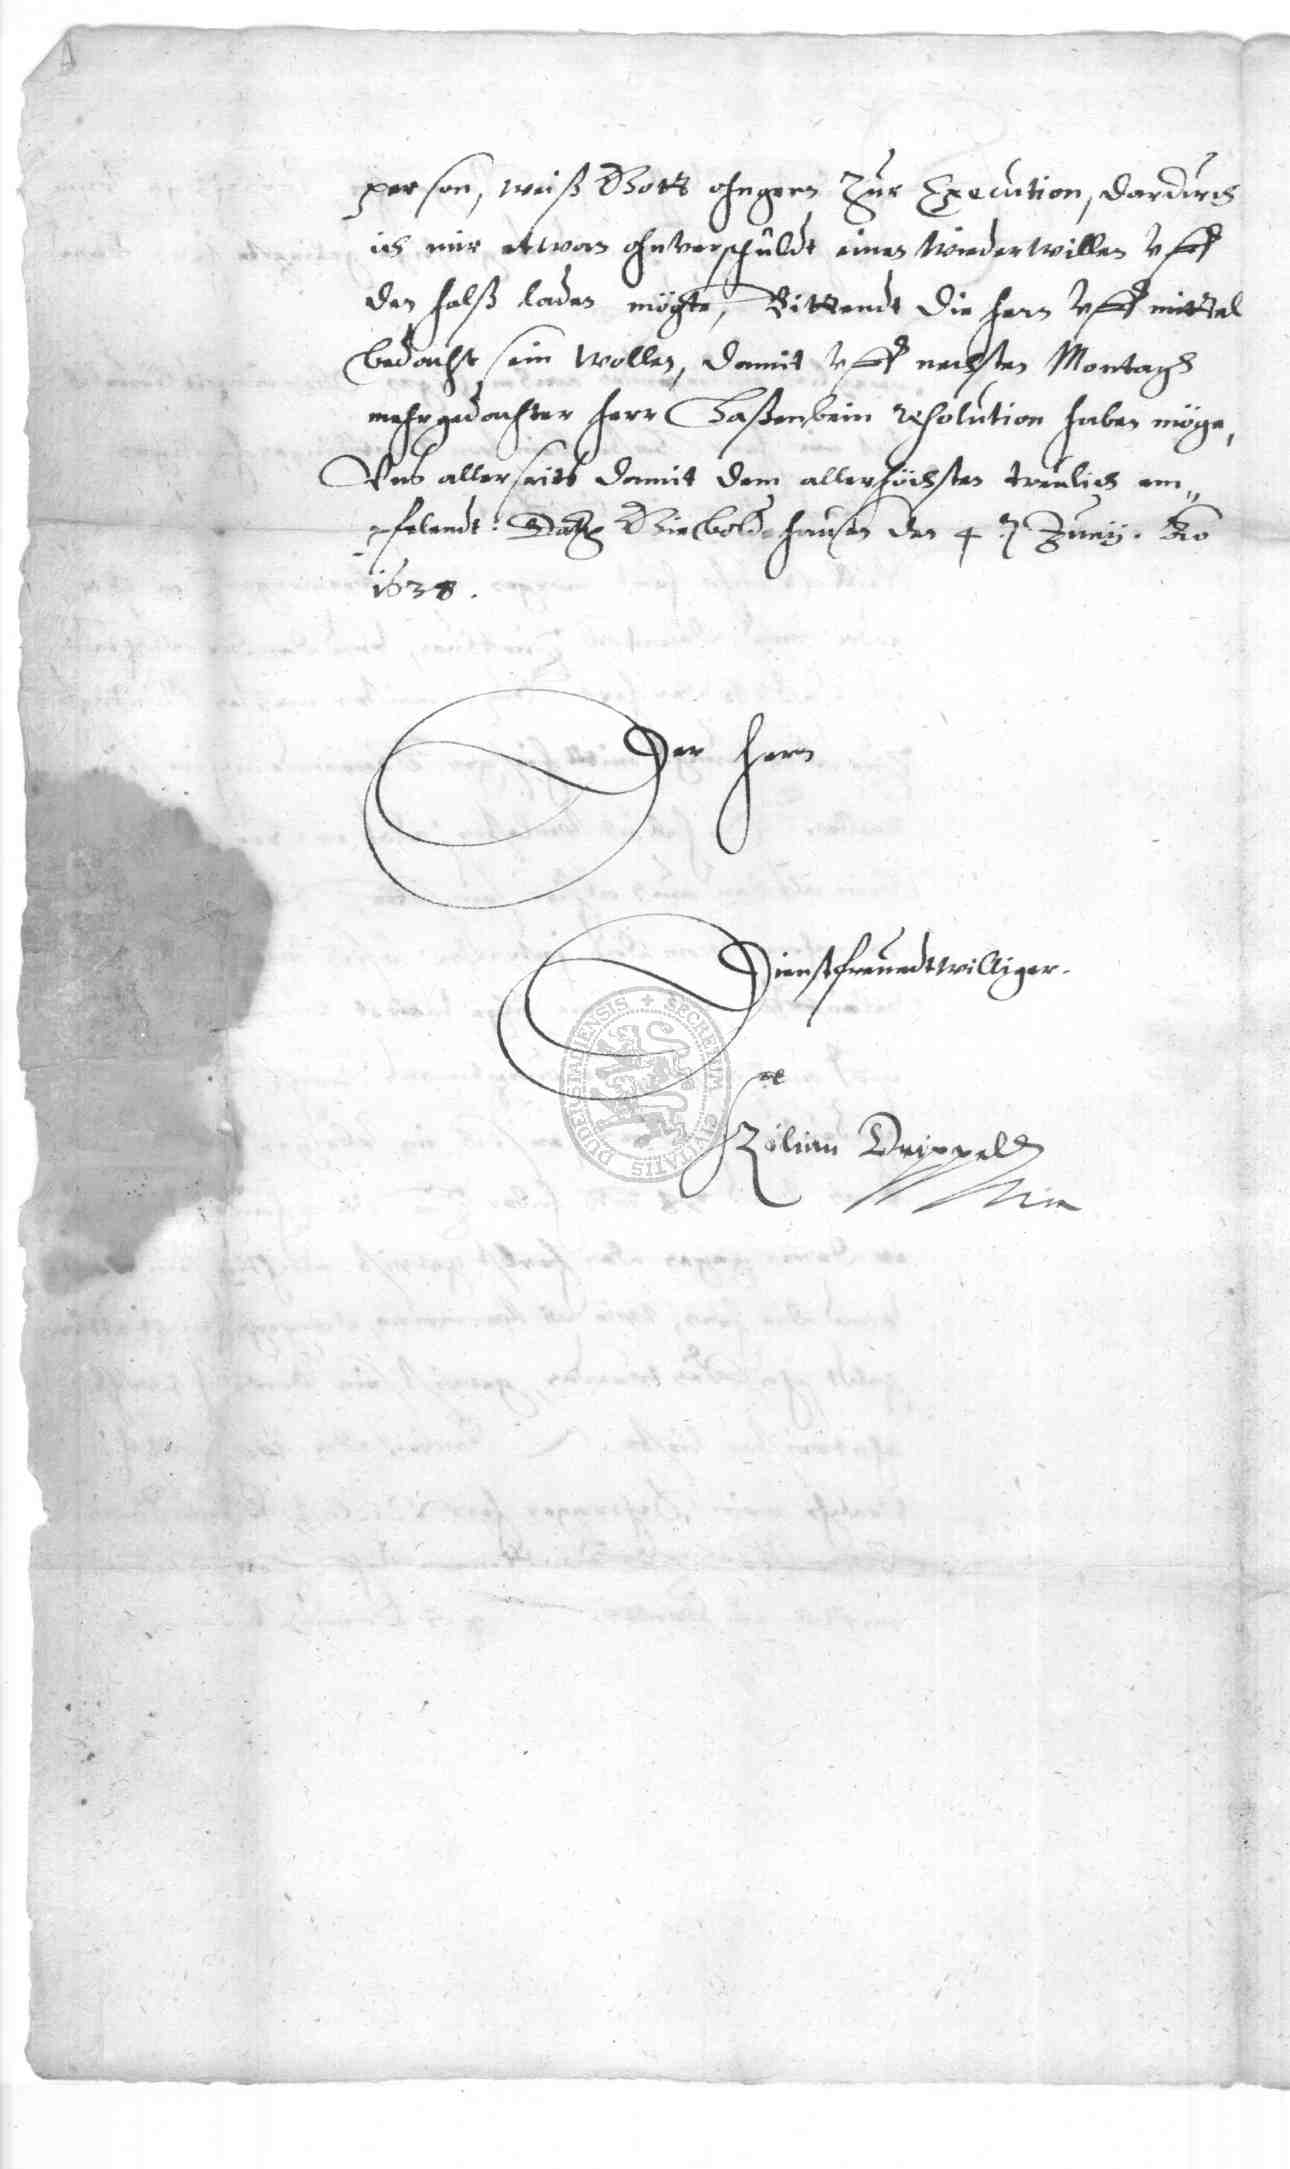 person, weiß Gott ohngern Zur Execution, dardurch
ich mir etwan ohnverschuldt einen wiederwillen vff
den halß laden mögte, Bittendt die hern vff mittel
bedacht sein wollen, damit vff nechsten Montagh
mehrgedachter herr Gaßenbein resolution haben möge,
Vns allerseits damit dem allerhöchsten treulich em„
pfelendt. Giebolde hausen den 4. Junij. Ao
1638.
Der Hern
Dienstfreundtwilliger.
SECRETUM CIVITATIS DUDERSTADIENSIS
Kilian